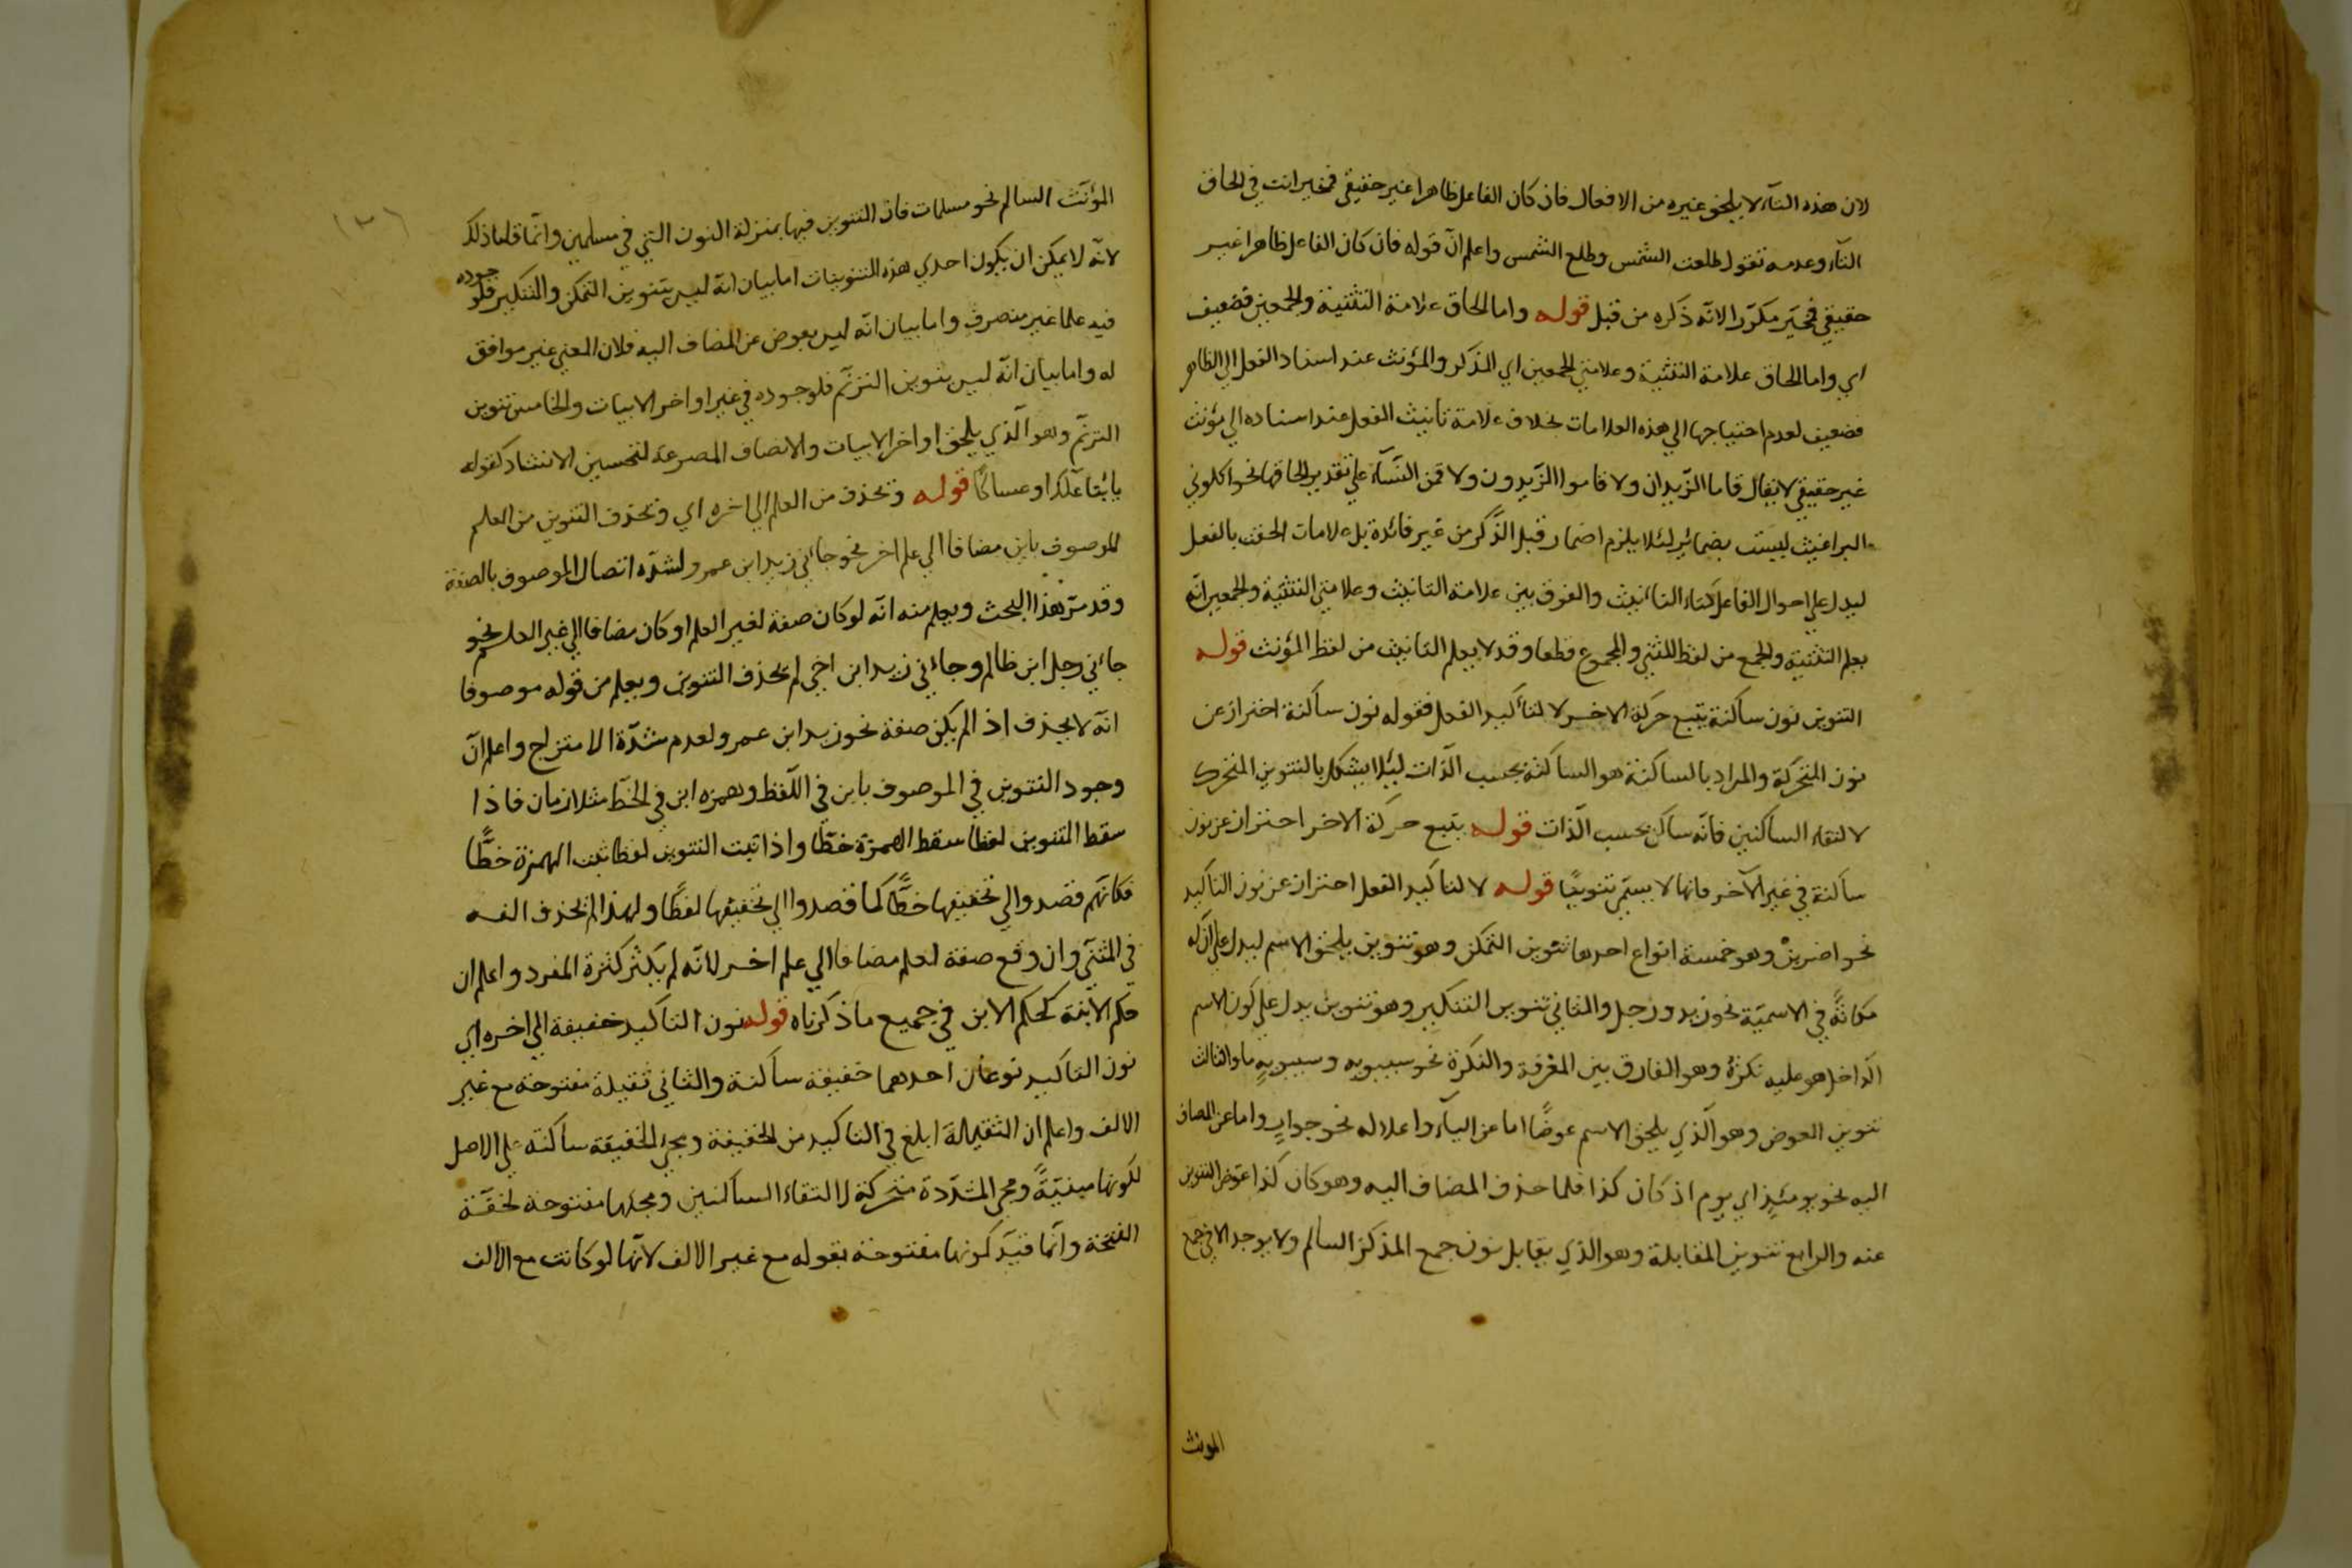 لان هذه التآء لا يلحق غيره من الافعال فان كان الفاعل ظاهرا غير حقيقي فمخير انت في الحاق
التآء وعدمه تقول طلعت الشمس وطلع الشمس واعلم انّ قوله فان كان الفاعل ظاهرا غير
حقيقي فمخير مكرّر الانّه ذكره من قبل قوله واما الحاق علامة التثنية والجمعين فضعيف
اي واما الحاق علامة التثنية وعلامتي الجمعين اي المذكر والمؤنث عند اسناد الفعل الي الظاهر
فضعيف لعدم احتياجها الي هذه العلامات بخلاف علامة تأنيث الفعل عند اسناده الي مؤنث
غير حقيقي لا يقال قاما الزّيدان ولا قاموا الزّيدون ولا قمن النسآء علي تقدير الحاقها نحو اكلوني
البراغيث ليست بضمائر لئلا يلزم اضمار قبل الذّكر من غير فائدة بل علامات الحقت بالفعل
ليدل علي احوال الفاعل كتاء التانيث والفرق بين علامة التانيث وعلامتي التثنية والجمعين انّه
يعلم التثنية والجمع من لفظ المثني والمجموع قطعا وقد لا يعلم التانيث من لفظ المؤنث قوله
التنوين نون ساكنة يتبع حركة الاخر لا لتأكيد الفعل فقوله نون ساكنة احتراز عن
نون المتحركة والمراد بالساكنة هو الساكنة بحسب الذّات ليئلا يشكل بالتنوين المتحرك
لالتقاء الساكنين فانّه ساكن بحسب الذّات قوله يتبع حركة الاخر احتراز عن نون
ساكنة في غير الآخر فانها لا يسمّي تنوينًا قوله لا لتأكيد الفعل احتراز عن نون التأكيد
نحو اضربنْ وهو خمسة انواع احدها تنوين التمكن وهو تنوين يلحق الاسم ليدل علي انّ له
مكانةً في الاسميّة نحو زيد ورجل والثاني تنوين التنكير وهو تنوين يدل علي كون الاسم
الداخل هو عليه نكرةً وهو الفارق بين المعرفة والنكرة نحو سيبويه وسيبويهٍ ما والثالث
تنوين العوض وهو الّذي يلحق الاسم عوضًا اما عن اليآء واعلاله نحو جوارٍ واما عن المضاف
اليه نحو يومئذٍ اي يوم اذ كان كذا فلما حذف المضاف اليه وهو كان كذا عوّض التنوين
عنه والرابع تنوين المقابلة وهو الذي يقابل نون جمع المذكر السالم ولا يوجد الا في جمع
المؤنث
المؤنّث السالم نحو مسلمات فانّ التنوين فيها بمنزلة النون التي في مسلمين وانّما قلنا ذلك
لانّه لا يمكن ان يكون احدي هذه التنوينات اما بيان انّه ليس بتنوين التمكن والتنكير فلوجوده
فيه علما غير منصرف واما بيان انّه ليس بعوض عن المضاف اليه فلان المعني غير موافق
له واما بيان انّه ليس بتنوين الترنّم فلوجوده في غير اواخر الابيات والخامس تنوين
الترنّم وهو الّذي يلحق اواخر الابيات والانصاف المصرعة لتحسين الانشاد كقوله
يا ابتا علّك او عساكًا قوله وتحذف من العلم الي اخره اي وتحذف التنوين من العلم
الموصوف بابن مضافا الي علم اخر نحو جاءني زيد ابن عمرو لشدّة اتصال الموصوف بالصفة
وقد مرّ هذا البحث ويعلم منه انّه لو كان صفة لغير العلم او كان مضافا الي غير العلم نحو
جاءني رجل ابن ظالم وجاءني زيد ابن اخي لم تحذف التنوين ويعلم من قوله موصوفا
انّه لا يحذف اذا لم يكن صفة نحو زيد ابن عمرو لعدم شدّة الامتزاج واعلم انّ
وجود التنوين في الموصوف بابن في اللّفظ وهمزه ابن في الخط متلازمان فاذا
سقط التنوين لفظا سقط الهمزة خطّا واذا ثبت التنوين لفظا ثبت الهمزة خطًّا
فكانّهم قصدوا الي تخفيفها خطًّا كما قصدوا الي تخفيفها لفظًا ولهذا لم يحذف الفه
في المثنّي وان وقع صفة لعلم مضافا الي علم اخر لانّه لم يكثر كثرة المفرد واعلم ان
حكم الابنة كحكم الابن في جميع ما ذكرناه قوله نون التاكيد خفيفة الي اخره اي
نون التاكيد نوعان احدهما خفيفة ساكنة والثاني ثقيلة مفتوحة مع غير
الالف واعلم ان الثقيلة ابلغ في التاكيد من الخفيفة ويجئ الخفيفة ساكنة علي الاصل
لكونها مبنيّةً ومجئ المشدّدة متحركة لالتقاء الساكنين ومجئها مفتوحة لخفّة
الفتحة وانّما قيّد كونها مفتوحة بقوله مع غير الالف لانّها لو كانت مع الالف